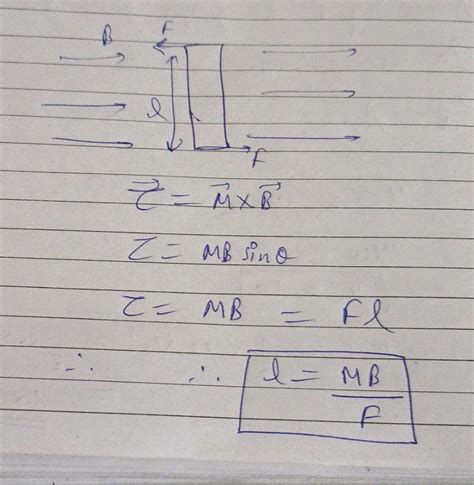 B F
l
F
τ⃗ = M⃗ × B⃗
τ = MB sinθ
τ = MB = Fl
∴ ∴ l = MB/F